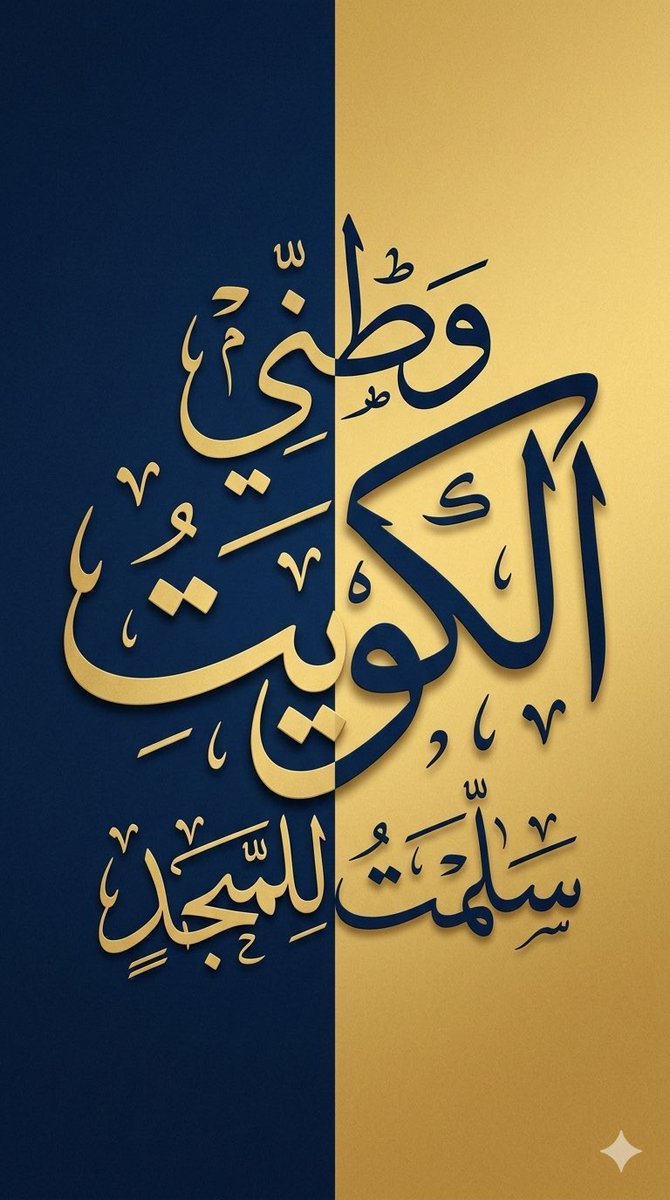 وَطَنِّي
الكويتُ
سَلِّمتَُ للمَجدٍ